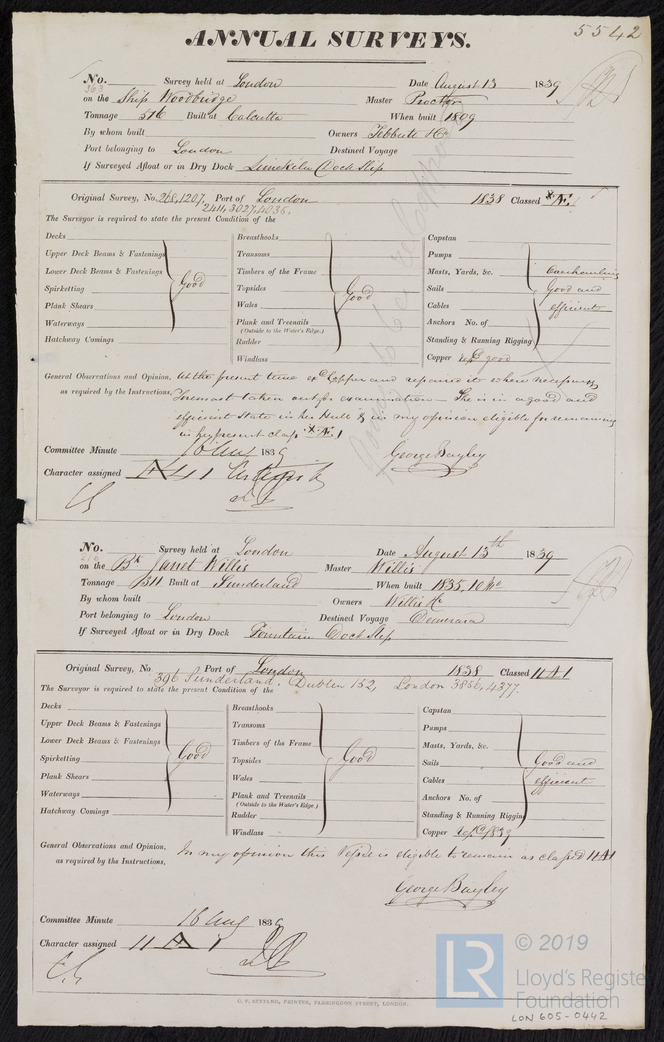 ANNUAL SURVEYS.
5542
No. Survey held at London Date August 13 1839
363
on the Ship Woodbridge Master Proctor
Tonnage 516 Built at Calcutta When built 1809
By whom built Owners Tebbutt & Co
Port belonging to London Destined Voyage
If Surveyed Afloat or in Dry Dock Limekiln Dock Slip
Original Survey, No. 268, 1207, Port of London 1838 Classed
2411, 3027, 4036,
The Surveyor is required to state the present Condition of the
Decks
Upper Deck Beams & Fastenings
Lower Deck Beams & Fastenings
Spirketting
Plank Shears
Waterways
Hatchway Comings
Good
Breasthooks
Transoms
Timbers of the Frame
Topsides
Wales
Plank and Treenails
(Outside to the Water's Edge.)
Rudder
Windlass
Good
Capstan
Pumps
Masts, Yards, &c.
Sails
Cables
Anchors No. of
Standing & Running Rigging
Copper good
Overhauling
Good and
efficient
General Observations and Opinion, At the present time Copper and repaired it where necessary
as required by the Instructions, Foremast taken out for examination – She is in a good and
efficient State in her Hull & in my opinion eligible for remaining
in her present class
George Bayley
Committee Minute 16 Aug 1839
Character assigned
No. Survey held at London Date August 13th 1839
on the Bk Janet Willis Master Willis
Tonnage 311 Built at Sunderland When built 1835, 10 Mo
By whom built Owners Willis & Co
Port belonging to London Destined Voyage Demerara
If Surveyed Afloat or in Dry Dock Fountain Dock Slip
Original Survey, No Port of London 1838 Classed 11 A1
396 Sunderland, Dublin 152, London 3856, 4377,
The Surveyor is required to state the present Condition of the
Decks
Upper Deck Beams & Fastenings
Lower Deck Beams & Fastenings
Spirketting
Plank Shears
Waterways
Hatchway Comings
Good
Breasthooks
Transoms
Timbers of the Frame
Topsides
Wales
Plank and Treenails
(Outside to the Water's Edge.)
Rudder
Windlass
Good
Capstan
Pumps
Masts, Yards, &c.
Sails
Cables
Anchors No. of
Standing & Running Rigging
Copper 1839
Good and
efficient
General Observations and Opinion, In my opinion this Vessel is eligible to remain as classed 11 A1
as required by the Instructions,
George Bayley
Committee Minute 16 Aug 1839
Character assigned 11 A 1
C. F. SEYFANG, PRINTER, FARRINGDON STREET, LONDON.
LR © 2019
Lloyd's Register
Foundation
LON 605-0442